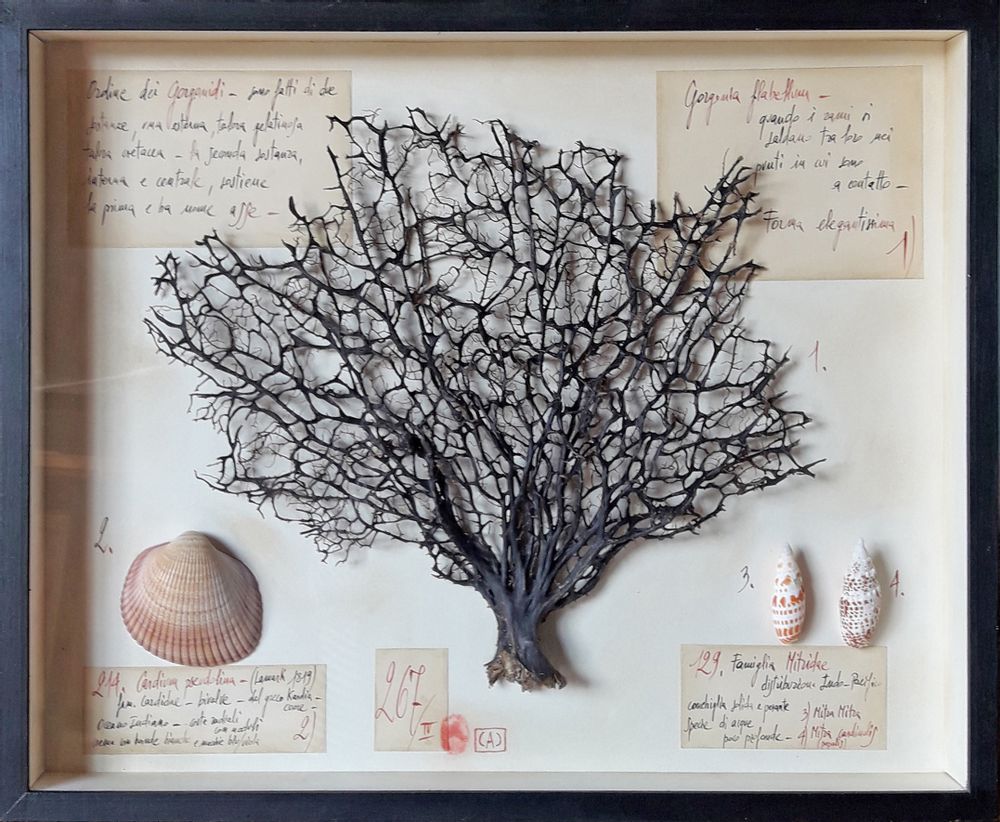 Ordine dei Gorgonidi - sono fatti di due
sostanze, una esterna, talora gelatinosa
talora cretacea - la seconda sostanza,
interna e centrale, sostiene
la prima e ha nome asse -
Gorgonia flabellum -
quando i rami si
saldano tra loro nei
punti in cui sono
a contatto -
Forma elegantissima
1)
1.
2.
3.
4.
214. Cardium pseudolima - (Lamark 1819)
fam. Cardidae - bivalve - dal greco Kardia
cuore -
Oceano Indiano - coste radiali
con noduli
2)
267
II
(A)
129. Famiglia Mitridae
distribuzione Indo-Pacifico
conchiglia solida e pesante
specie di acque
poco profonde -
3) Mitra Mitra
4) Mitra Cardinalis